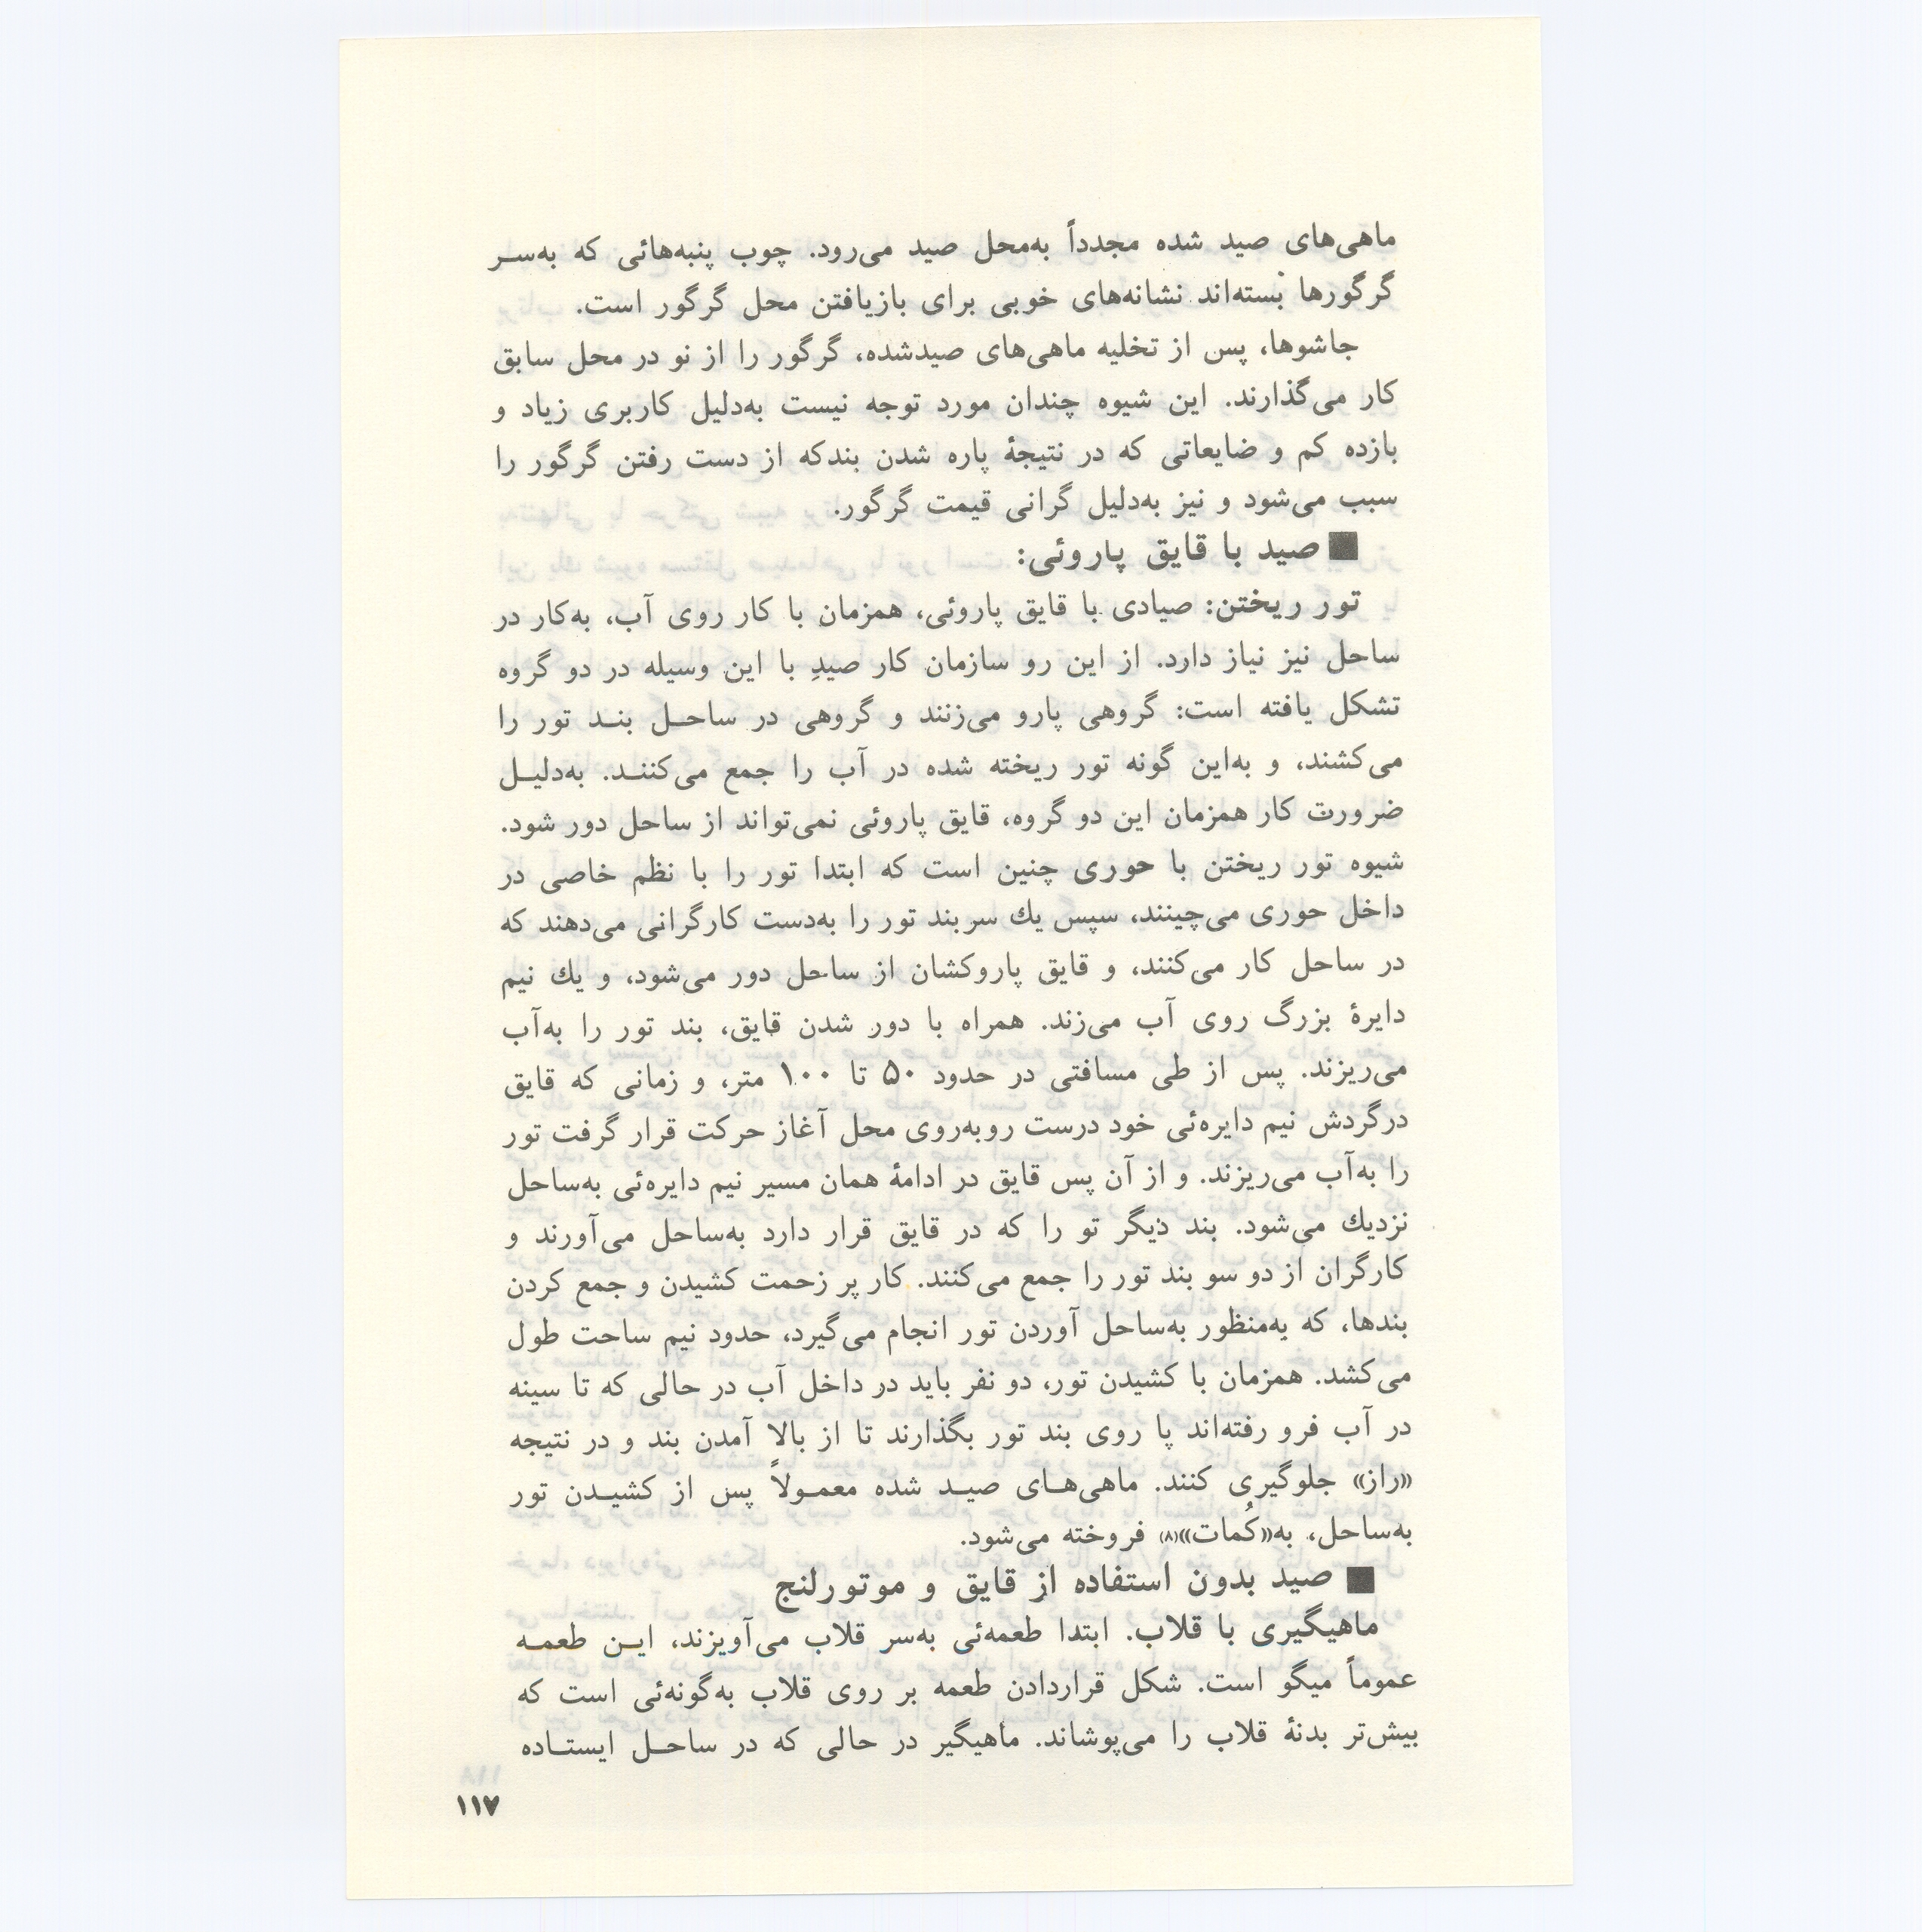 ماهی‌های صید شده مجدداً به‌محل صید می‌رود. چوب پنبه‌هائی که به‌سر
گرگورها بسته‌اند نشانه‌های خوبی برای بازیافتن محل گرگور است.
جاشوها، پس از تخلیه ماهی‌های صیدشده، گرگور را از نو در محل سابق
کار می‌گذارند. این شیوه چندان مورد توجه نیست به‌دلیل کاربری زیاد و
بازده کم و ضایعاتی که در نتیجهٔ پاره شدن بندکه از دست رفتن گرگور را
سبب می‌شود و نیز به‌دلیل گرانی قیمت گرگور.
■ صید با قایق پاروئی:
تور ریختن: صیادی با قایق پاروئی، همزمان با کار روی آب، به‌کار در
ساحل نیز نیاز دارد. از این رو سازمان کار صیدِ با این وسیله در دو گروه
تشکل یافته است: گروهی پارو می‌زنند و گروهی در ساحل بند تور را
می‌کشند، و به‌این گونه تور ریخته شده در آب را جمع می‌کنند. به‌دلیل
ضرورت کار همزمان این دو گروه، قایق پاروئی نمی‌تواند از ساحل دور شود.
شیوه تور ریختن با حوری چنین است که ابتدا تور را با نظم خاصی در
داخل حوری می‌چینند، سپس یك سر بند تور را به‌دست کارگرانی می‌دهند که
در ساحل کار می‌کنند، و قایق پاروکشان از ساحل دور می‌شود، و یك نیم
دایرهٔ بزرگ روی آب می‌زند. همراه با دور شدن قایق، بند تور را به‌آب
می‌ریزند. پس از طی مسافتی در حدود ۵۰ تا ۱۰۰ متر، و زمانی که قایق
درگردش نیم دایره‌ئی خود درست روبه‌روی محل آغاز حرکت قرار گرفت تور
را به‌آب می‌ریزند. و از آن پس قایق در ادامهٔ همان مسیر نیم دایره‌ئی به‌ساحل
نزدیك می‌شود. بند دیگر تو را که در قایق قرار دارد به‌ساحل می‌آورند و
کارگران از دو سو بند تور را جمع می‌کنند. کار پر زحمت کشیدن و جمع کردن
بندها، که به‌منظور به‌ساحل آوردن تور انجام می‌گیرد، حدود نیم ساحت طول
می‌کشد. همزمان با کشیدن تور، دو نفر باید در داخل آب در حالی که تا سینه
در آب فرو رفته‌اند پا روی بند تور بگذارند تا از بالا آمدن بند و در نتیجه
«راز» جلوگیری کنند. ماهی‌های صید شده معمولاً پس از کشیدن تور
به‌ساحل، به«کُمات»(۸) فروخته می‌شود.
■ صید بدون استفاده از قایق و موتورلنج
ماهیگیری با قلاب. ابتدا طعمه‌ئی به‌سر قلاب می‌آویزند، این طعمه
عموماً میگو است. شکل قراردادن طعمه بر روی قلاب به‌گونه‌ئی است که
بیش‌تر بدنهٔ قلاب را می‌پوشاند. ماهیگیر در حالی که در ساحل ایستاده
۱۱۷